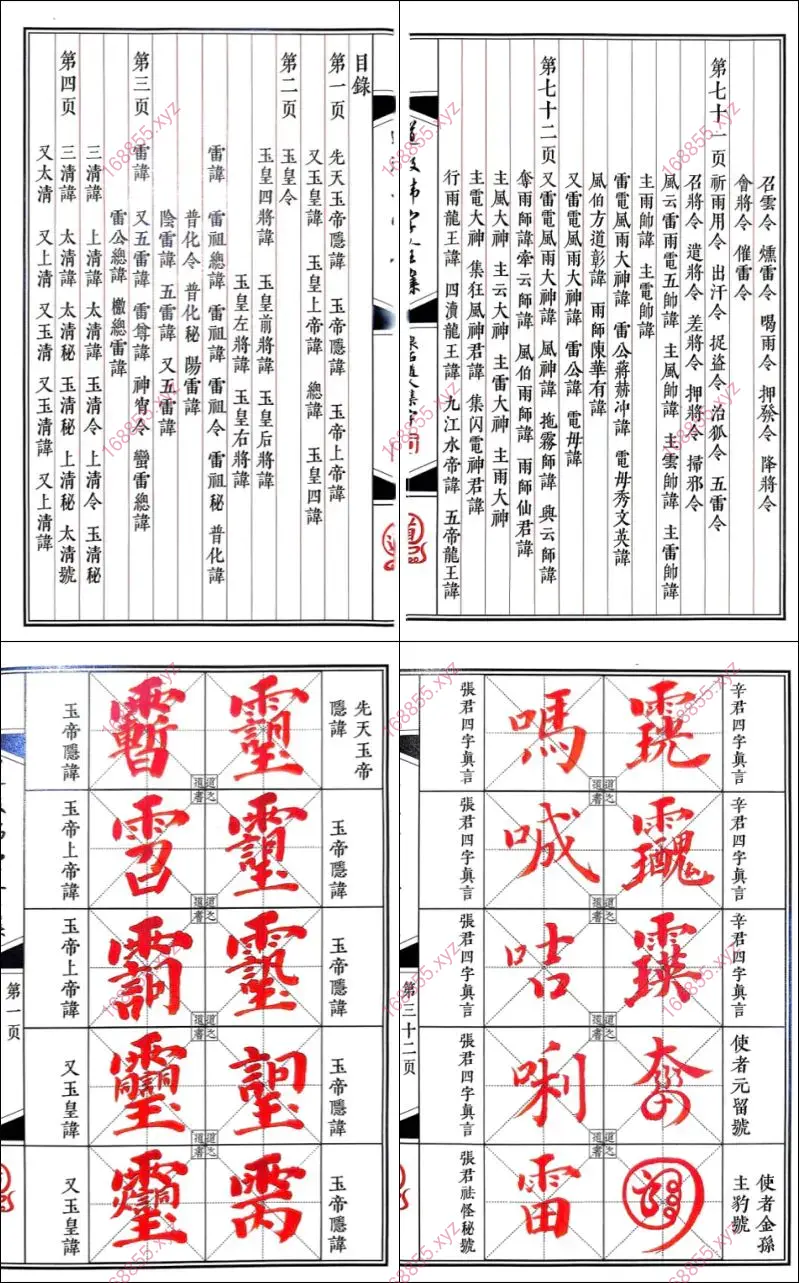 目錄
第一页 先天玉帝隱諱 玉帝隱諱 玉帝上帝諱
又玉皇諱 玉皇上帝諱 總諱 玉皇四諱
第二页 玉皇令
玉皇四將諱 玉皇前將諱 玉皇后將諱
玉皇左將諱 玉皇右將諱
雷諱 雷祖總諱 雷祖諱 雷祖令 雷祖秘 普化諱
普化令 普化秘 陽雷諱
陰雷諱 五雷諱 又五雷諱
第三页 雷諱 又五雷諱 雷尊諱 神霄令 蠻雷總諱
雷公總諱 檄總雷諱
三清諱 上清諱 太清諱 玉清令 上清令 玉清秘
第四页 三清諱 太清諱 太清秘 玉清秘 上清秘 太清號
又太清 又上清 又玉清 又玉清諱 又上清諱
召雲令 燻雷令 喝雨令 押發令 降將令
會將令 催雷令
第七十一页 祈雨用令 出汗令 捉盜令 治狐令 五雷令
召將令 遣將令 差將令 押將令 掃邪令
風云雷雨電五帥諱 主風帥諱 主雲帥諱 主雷帥諱
主雨帥諱 主電帥諱
雷電風雨大神諱 雷公蔣赫冲諱 電毋秀文英諱
風伯方道彰諱 雨師陳華有諱
又雷電風雨大神諱 雷公諱 電毋諱
第七十二页 又雷電風雨大神諱 風神諱 拖霧師諱 與云師諱
奪雨師諱 牽云師諱 風伯雨師諱 雨師仙君諱
主風大神 主云大神 主雷大神 主雨大神
主電大神 集狂風神君諱 集闪電神君諱
行雨龍王諱 四瀆龍王諱 九江水帝諱 五帝龍王諱
先天玉帝
隱諱
玉帝隱諱
玉帝隱諱
玉帝隱諱
玉帝隱諱
玉帝隱諱
玉帝上帝諱
玉帝上帝諱
又玉皇諱
又玉皇諱
道之
道書
第一页
辛君四字眞言
辛君四字眞言
辛君四字眞言
使者元留號
使者金孫
主豹號
嗎
喊
咕
唎
雷
張君四字眞言
張君四字眞言
張君四字眞言
張君四字眞言
張君祛怪秘號
第三十二页
168855.xyz